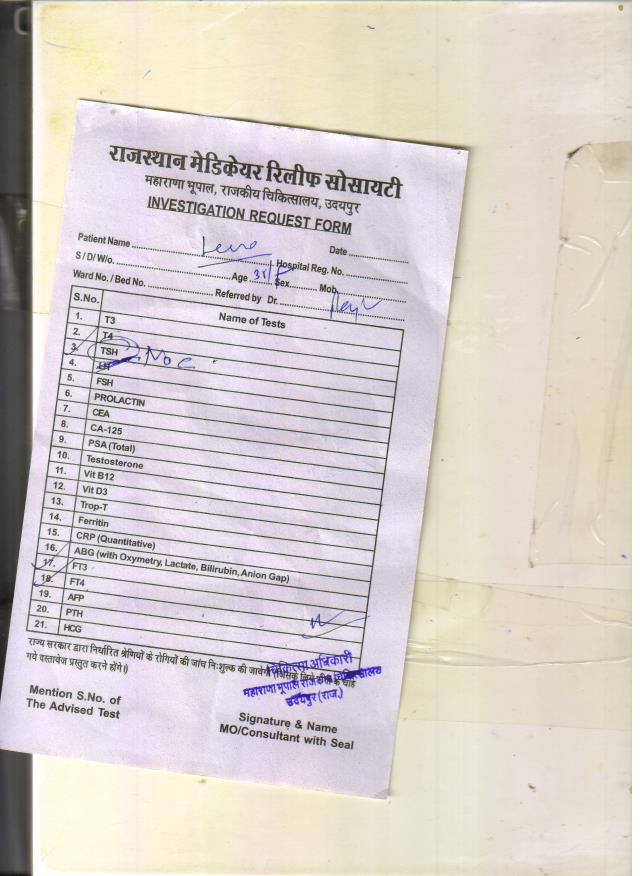 राजस्थान मेडिकेयर रिलीफ सोसायटी
महाराणा भूपाल, राजकीय चिकित्सालय, उदयपुर
INVESTIGATION REQUEST FORM
Patient Name Date
S / D/ W/o. Hospital Reg. No.
Age 35/F Sex Mob.
Ward No. / Bed No. Referred by Dr.
S.No. Name of Tests
1. T3
2. T4
3. TSH
4. LH
5. FSH
6. PROLACTIN
7. CEA
8. CA-125
9. PSA (Total)
10. Testosterone
11. Vit B12
12. Vit D3
13. Trop-T
14. Ferritin
15. CRP (Quantitative)
16. ABG (with Oxymetry, Lactate, Bilirubin, Anion Gap)
17. FT3
18. FT4
19. AFP
20. PTH
21. HCG
राज्य सरकार द्वारा निर्धारित श्रेणियों के रोगियों की जांच निःशुल्क की जावेगी (जिसके लिये
गये दस्तावेज प्रस्तुत करने होंगे।)
चिकित्सा अधिकारी
महाराणा भूपाल राजकीय चिकित्सालय
उदयपुर (राज.)
Mention S.No. of
The Advised Test
Signature & Name
MO/Consultant with Seal